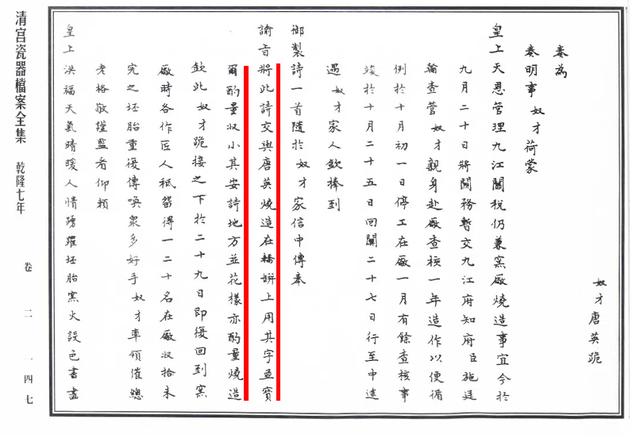 奴才唐英跪
奏為
奏明事奴才荷蒙
皇上天恩管理九江關稅仍兼窯廠燒造事宜今於
九月二十日將關務暫交九江府知府臣施廷
翰查管奴才親身赴廠查核一年造作以便循
例於十月初一日停工在廠一月有餘查核事
竣於十月二十五日回關二十七日行至中途
遇奴才家人欽捧到
御製詩一首隨於奴才家信中傳奉
諭旨將此詩交與唐英燒造在轎缾上用其字並寶
爾酌量收小其安詩地方並花樣亦酌量燒造
欽此奴才跪接之下於二十九日即復回到窯
廠時各作匠人祗留得一二十名在廠收拾未
完之坯胎重復傳喚眾多好手奴才率領催總
老格敬謹監看仰賴
皇上洪福天氣晴暖人情踴躍坯胎窯火設色書畫
清宮瓷器檔案全集 乾隆七年 卷二 一四七